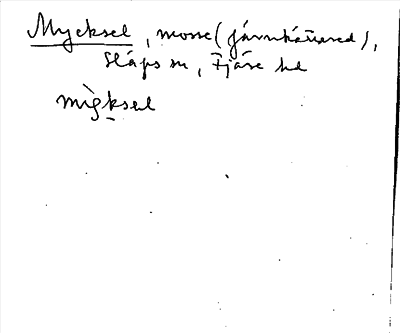 Mycksel, mosse (järnkällared),
Släps sn, Fjäre hd
mỳksel